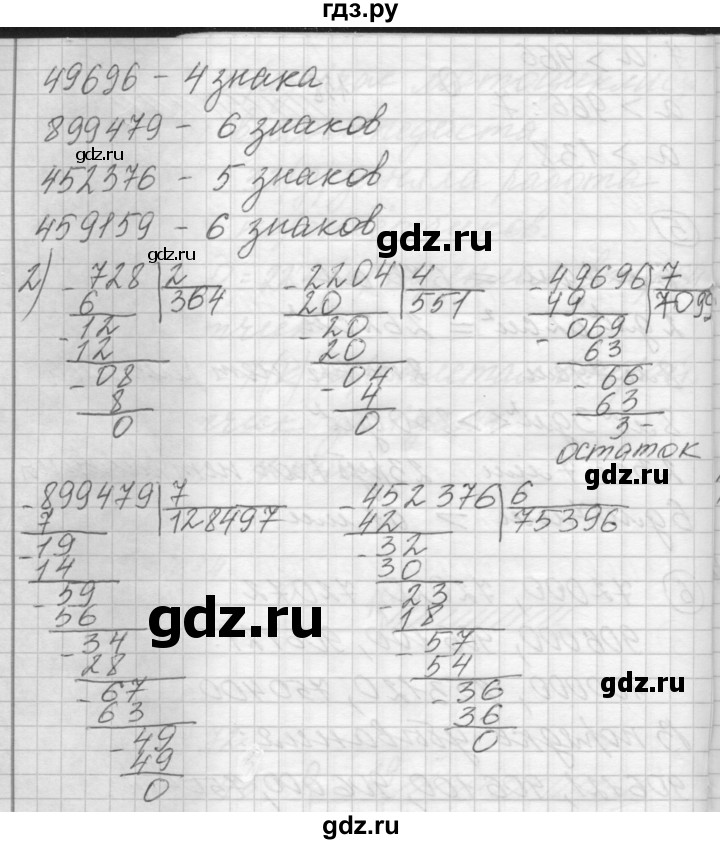 гдз.ру
49696 - 4 знака
899479 - 6 знаков
gdz.ru
452376 - 5 знаков
459159 - 6 знаков
gdz.ru
gdz.ru
2) - 728 | 2 - 2204 | 4 - 49696 | 7
6 364 20 551 49 7099
- 12 - 20 - 069
12 20 63
- 08 - 04 - 66
8 4 63
0 0 3 -
остаток
gdz.ru
- 899479 | 7 - 452376 | 6
7 128497 42 75396
- 19 - 32
14 30
- 59 - 23
56 18
gdz.ru
- 34 - 57
28 54
- 67 - 36
63 36
gdz.ru
- 49 0
49
0
gdz.ru
gdz.ru